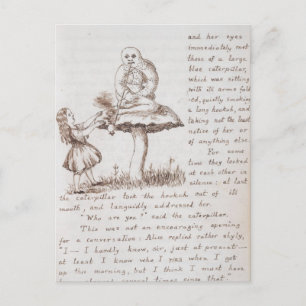 and her eyes
immediately met
those of a large
blue caterpillar,
which was sitting
with its arms fold-
ed, quietly smoking
a long hookah, and
taking not the least
notice of her or
of anything else.
For some
time they looked
at each other in
silence: at last
the caterpillar took the hookah out of its
mouth, and languidly addressed her.
"Who are you?" said the caterpillar.
This was not an encouraging opening
for a conversation: Alice replied rather shyly,
"I — I hardly know, sir, just at present —
at least I know who I was when I got
up this morning, but I think I must have
been changed several times since that."